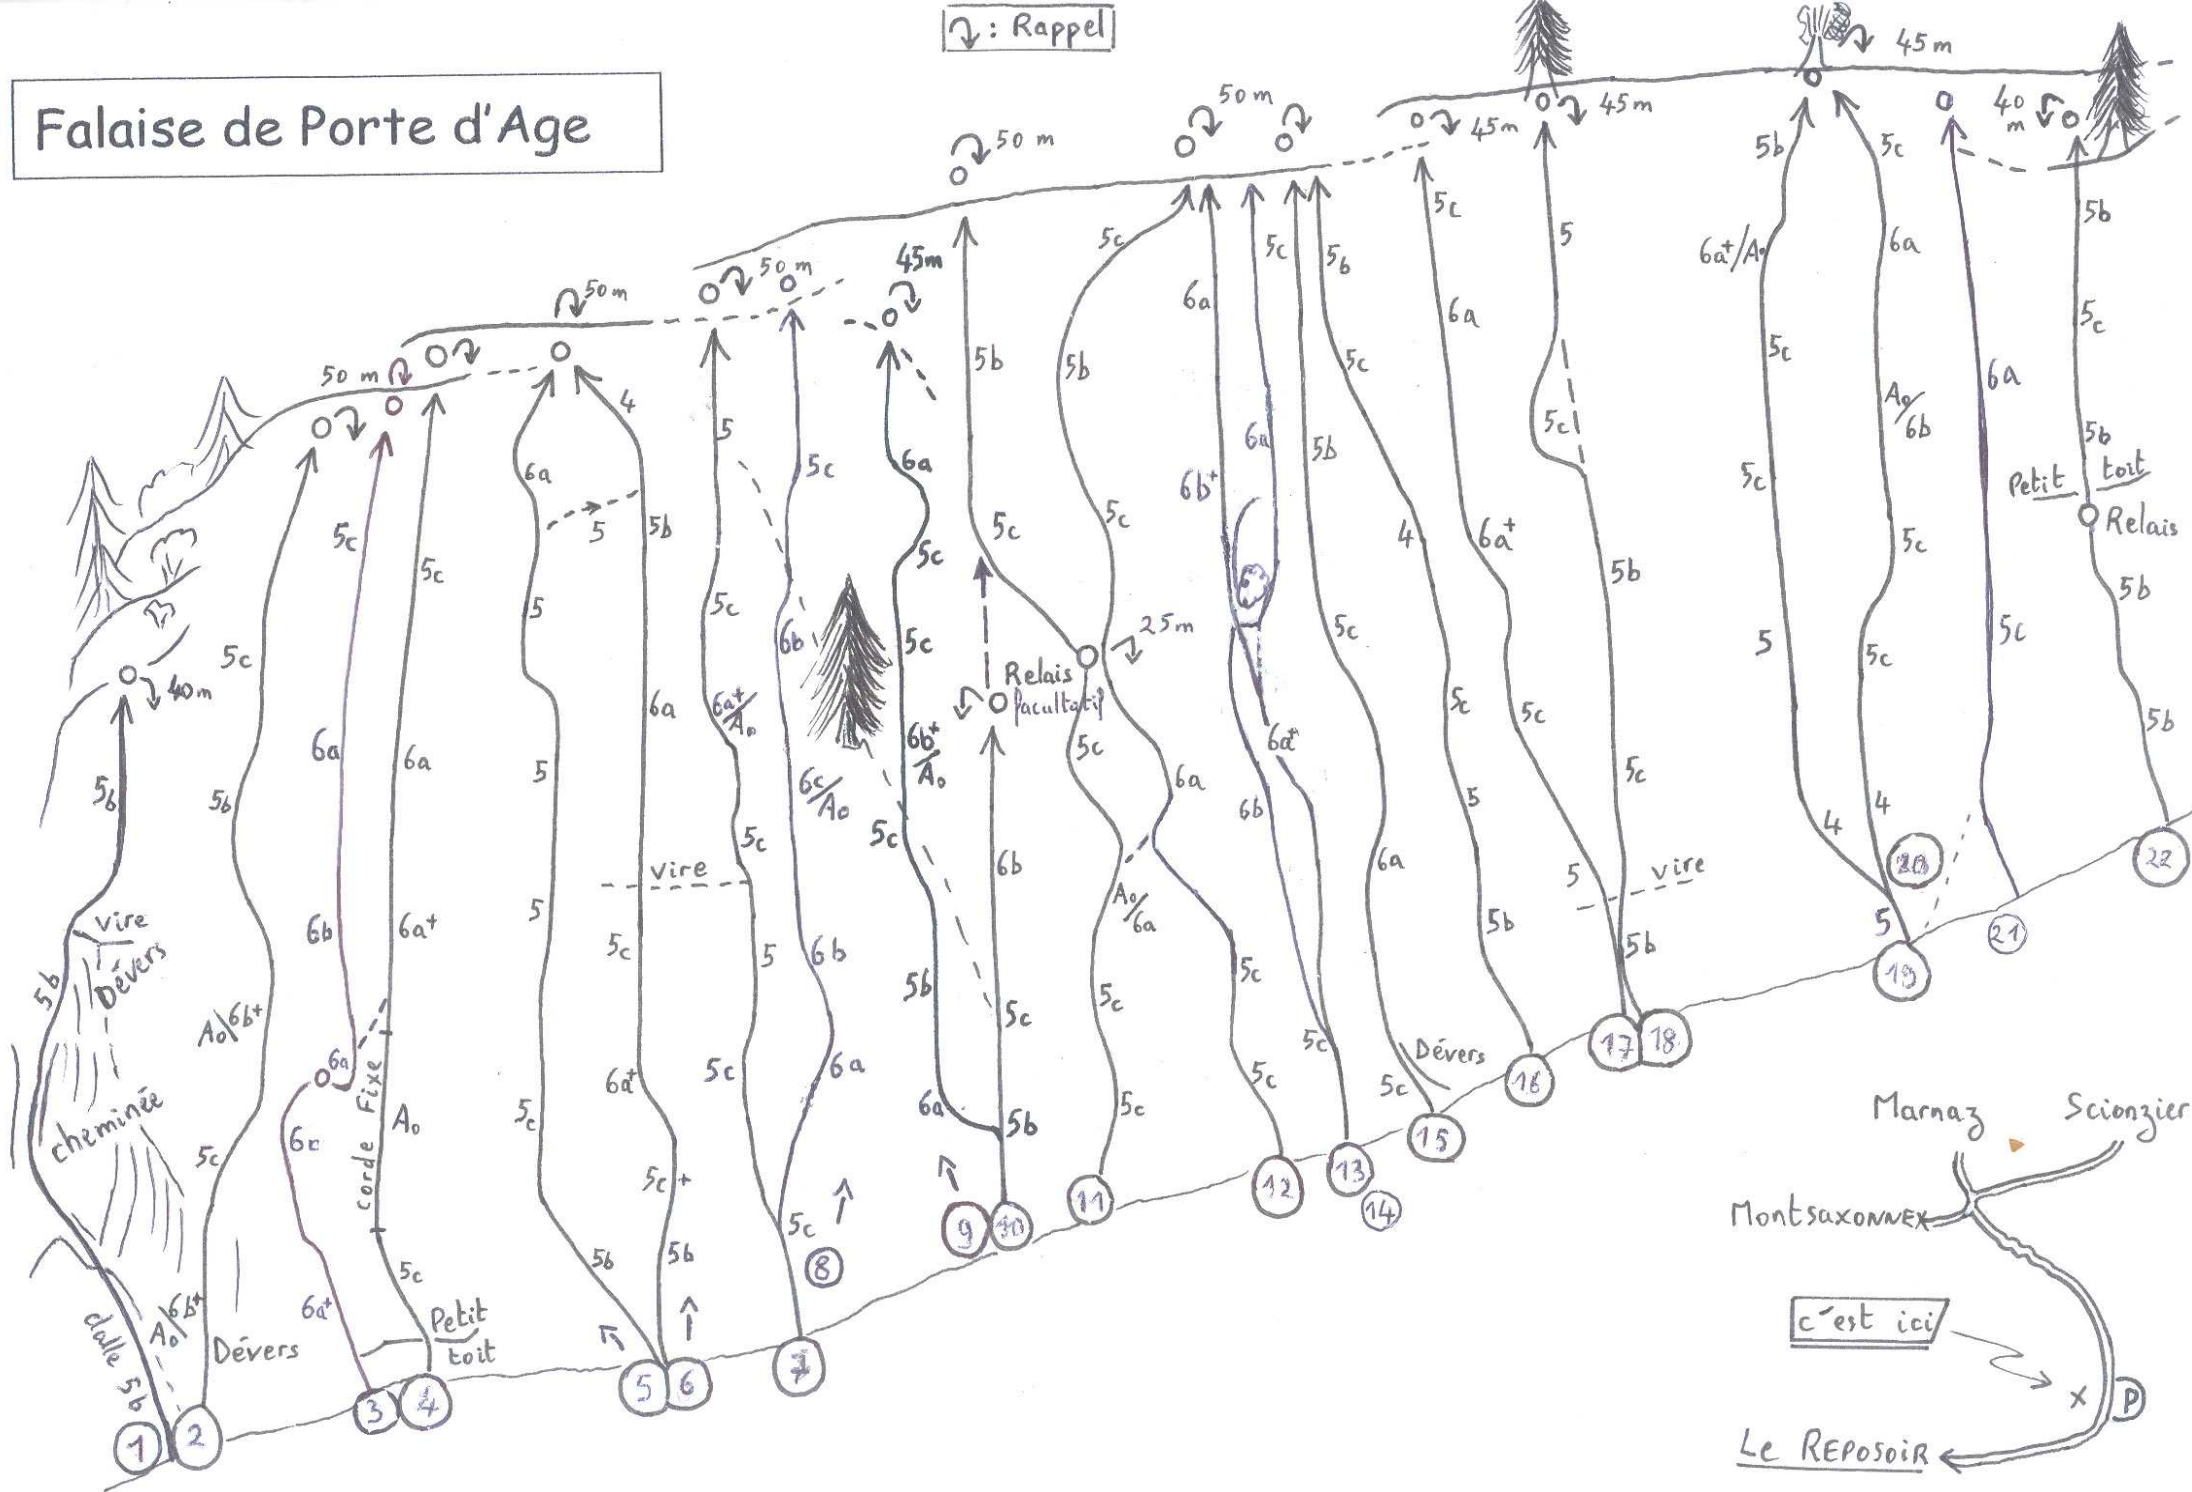 : Rappel
Falaise de Porte d'Age
45 m
45 m
40 m
50 m
45 m
50 m
45 m
50 m
50 m
50 m
40 m
25 m
5b
vire
Dévers
5b
cheminée
dalle 5b
5c
5b
A0/6b+
5c
A0/6b+
Dévers
5c
6a
6b
6a
6c
6a+
5c
6a
6a+
corde Fixe
A0
5c
Petit toit
6a
5
5
5
5c
5b
4
5
5b
6a
vire
5c
6a+
5c+
5b
5
5c
6a+/A0
5c
5
5c
5c
5c
6b
6c/A0
6b
6a
6a
5c
5c
6b+/A0
5c
5b
6a
5b
5c
Relais facultatif
6b
5c
5b
5c
5b
5c
5c
6a
A0/6a
5c
5c
5c
5c
6a
6b+
6b
5c
5c
6a
6a+
5c
5b
5b
5c
6a
5c
Dévers
5b
5c
4
5c
5
5b
5c
6a
6a+
5c
5
5
5c
5b
5c
vire
5b
5b
6a+/A0
5c
5c
5
4
5c
6a
A0/6b
5c
5c
4
5
6a
5c
5b
5c
5b
Petit toit
Relais
5b
5b
1
2
3
4
5
6
7
8
9
10
11
12
13
14
15
16
17
18
19
20
21
22
Marnaz
Scionzier
Montsaxonnex
c'est ici
P
Le REPOSOIR